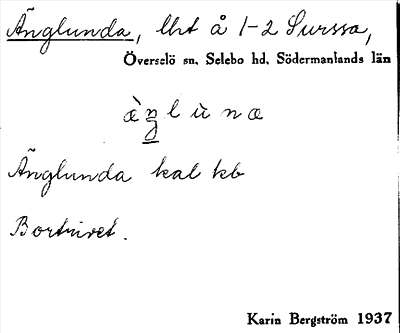 Änglunda, lht å 1-2 Surssa,
Överselö sn, Selebo hd, Södermanlands län
æ̀ŋlùnæ
Änglunda kal kb
Bortrivet.
Karin Bergström 1937